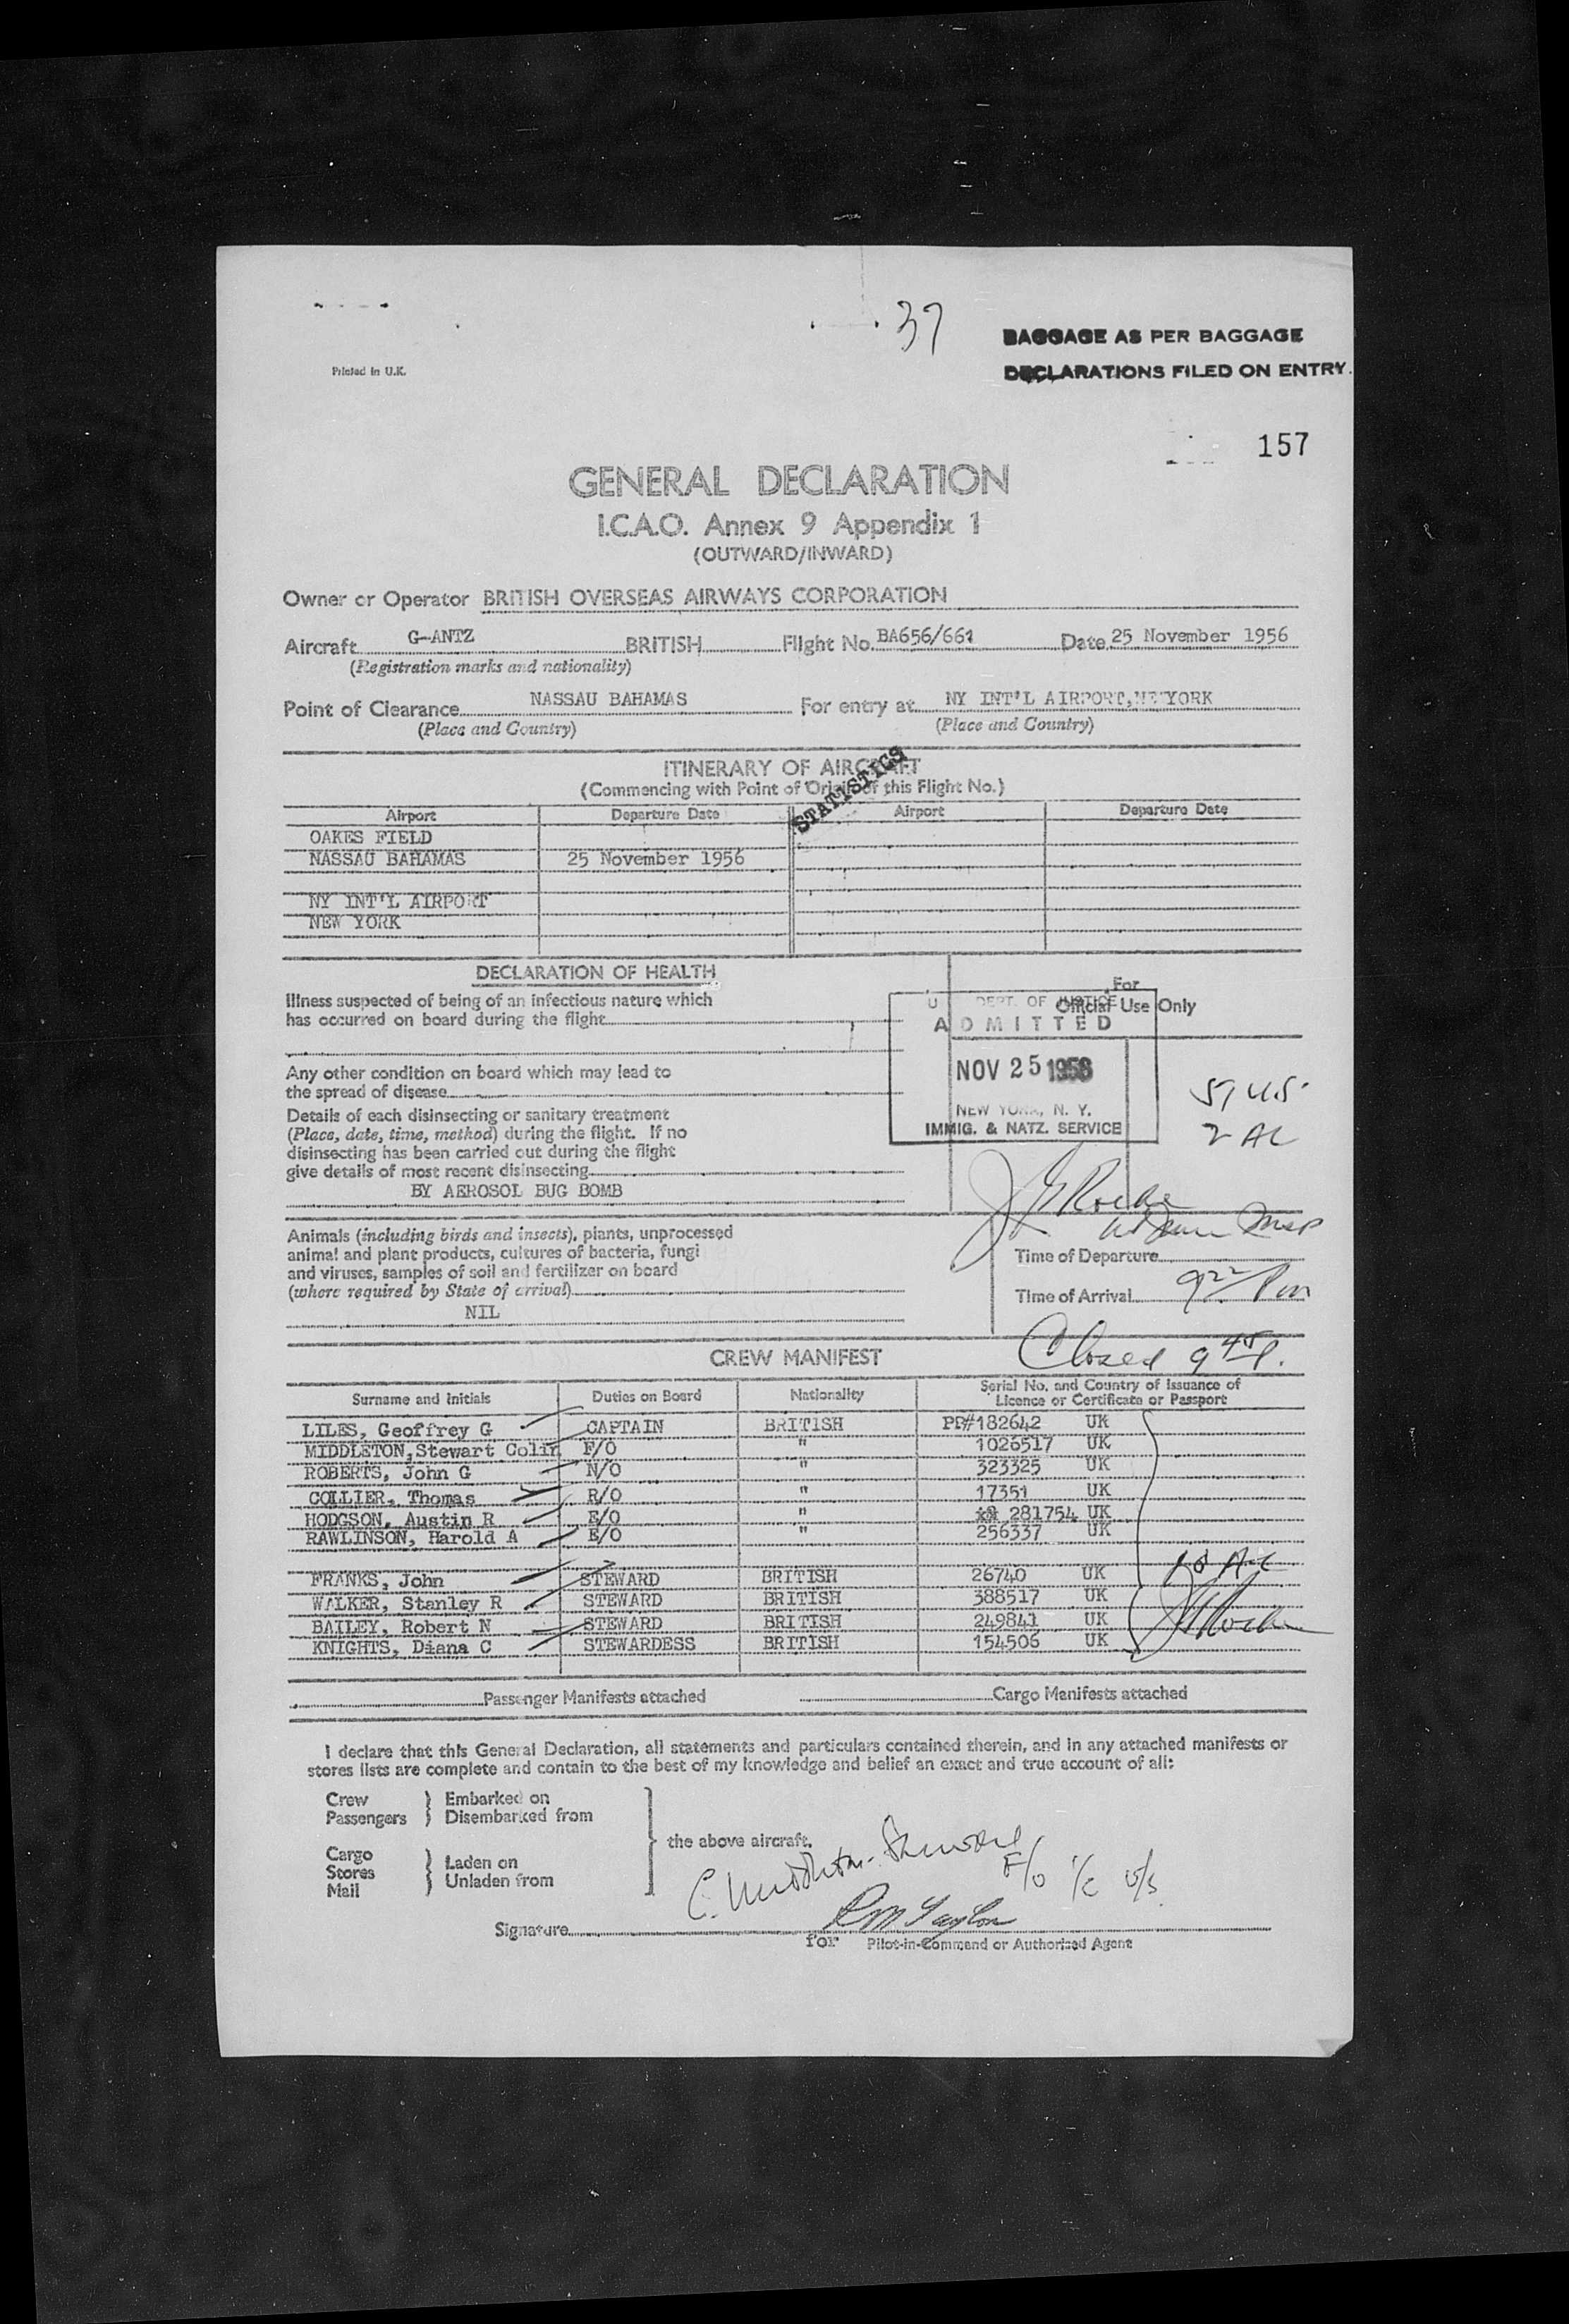 37
BAGGAGE AS PER BAGGAGE
DECLARATIONS FILED ON ENTRY.
Printed in U.K.
157
GENERAL DECLARATION
I.C.A.O. Annex 9 Appendix 1
(OUTWARD/INWARD)
Owner or Operator BRITISH OVERSEAS AIRWAYS CORPORATION
Aircraft G-ANTZ BRITISH Flight No. BA656/661 Date 25 November 1956
(Registration marks and nationality)
Point of Clearance NASSAU BAHAMAS For entry at NY INT'L AIRPORT, YORK
(Place and Country) (Place and Country)
STATISTICS
ITINERARY OF AIRCRAFT
(Commencing with Point of Origin of this Flight No.)
Airport Departure Date Airport Departure Date
OAKES FIELD
NASSAU BAHAMAS 25 November 1956
NY INT'L AIRPORT
NEW YORK
DECLARATION OF HEALTH
For
Official Use Only
Illness suspected of being of an infectious nature which
has occurred on board during the flight
U DEPT. OF JUSTICE
ADMITTED
NOV 25 1956
NEW YORK, N. Y.
IMMIG. & NATZ. SERVICE
57 U.S.
2 AL
Any other condition on board which may lead to
the spread of disease
Details of each disinsecting or sanitary treatment
(Place, date, time, method) during the flight. If no
disinsecting has been carried out during the flight
give details of most recent disinsecting
BY AEROSOL BUG BOMB
J Roche
Insp
Animals (including birds and insects), plants, unprocessed
animal and plant products, cultures of bacteria, fungi
and viruses, samples of soil and fertilizer on board
(where required by State of arrival)
NIL
Time of Departure
Time of Arrival 9 22 Pm
Closed 9 45 P.
CREW MANIFEST
Surname and Initials Duties on Board Nationality Serial No. and Country of Issuance of
Licence or Certificate or Passport
LILES, Geoffrey G CAPTAIN BRITISH PP#182642 UK
MIDDLETON,Stewart Colin F/O " 1026517 UK
ROBERTS, John G N/O " 323325 UK
COLLIER, Thomas R/O " 17351 UK
HODGSON, Austin R E/O 281754 UK
RAWLINSON, Harold A E/O " 256337 UK
FRANKS, John STEWARD BRITISH 26740 UK
WALKER, Stanley R STEWARD BRITISH 388517 UK
BAILEY, Robert N STEWARD BRITISH 249841 UK
KNIGHTS, Diana C STEWARDESS BRITISH 154506 UK
10 A-C
Roche
Passenger Manifests attached Cargo Manifests attached
I declare that this General Declaration, all statements and particulars contained therein, and in any attached manifests or
stores lists are complete and contain to the best of my knowledge and belief an exact and true account of all:
Crew Embarked on
Passengers Disembarked from
the above aircraft.
Cargo
Stores Laden on
Mail Unladen from
C. Middleton-Stewart F/O
RM Taylor
Signature
for Pilot-in-Command or Authorized Agent